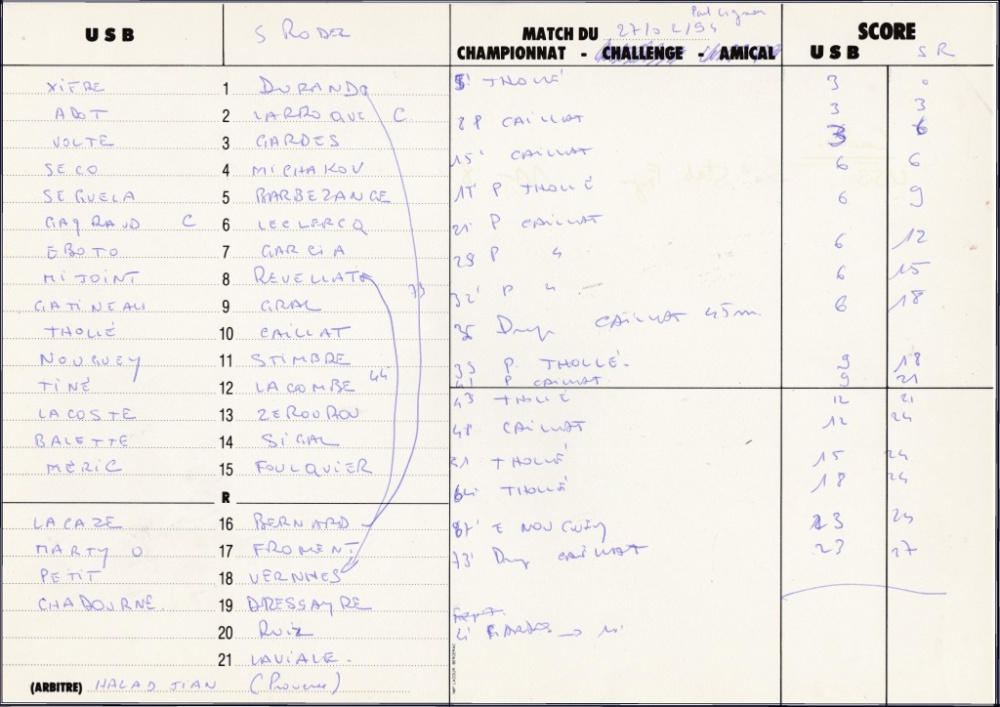 USB S RODEZ MATCH DU 27/02/94 SCORE
CHAMPIONNAT - CHALLENGE - AMICAL USB SR
XIFRE 1 DURAND
ADOT 2 LARROQUE C
VOLTE 3 GARDES
SECO 4 MICHAKOV
SEGUELA 5 BARBEZANGE
GAYRAUD C 6 LECLERCQ
EBOTO 7 GARCIA
MIJOINT 8 REVELLAT
GATINEAU 9 GRAL
THOLLÉ 10 CAILLAT
NOUGUEY 11 STIMBRE
TINÉ 12 LACOMBE 44
LACOSTE 13 ZEROUROU
BALETTE 14 SIGAL
MÉRIC 15 FOULQUIER
R
LACAZE 16 BERNARD
MARTY O 17 FROMENT
PETIT 18 VERNHES
CHADOURNE 19 DRESSAYRE
20 RUIZ
21 LAVIALE.
(ARBITRE) HALADJIAN (Provence)
73
5' THOLLÉ 3 0
8 P CAILLAT 3 3
3 6
15' CAILLAT 6 6
P THOLLÉ 6 9
21' P CAILLAT
29 P 6 12
32' P 6 15
Drop CAILLAT 45m 6 18
39 P. THOLLÉ. 9 18
41 P CAILLAT 9 21
43 THOLLÉ 12 21
48 CAILLAT 12 24
51 THOLLÉ 15 24
64 THOLLÉ 18 24
67' E NOUGUEY 23 24
73' Drop CAILLAT 23 27
GARDES →